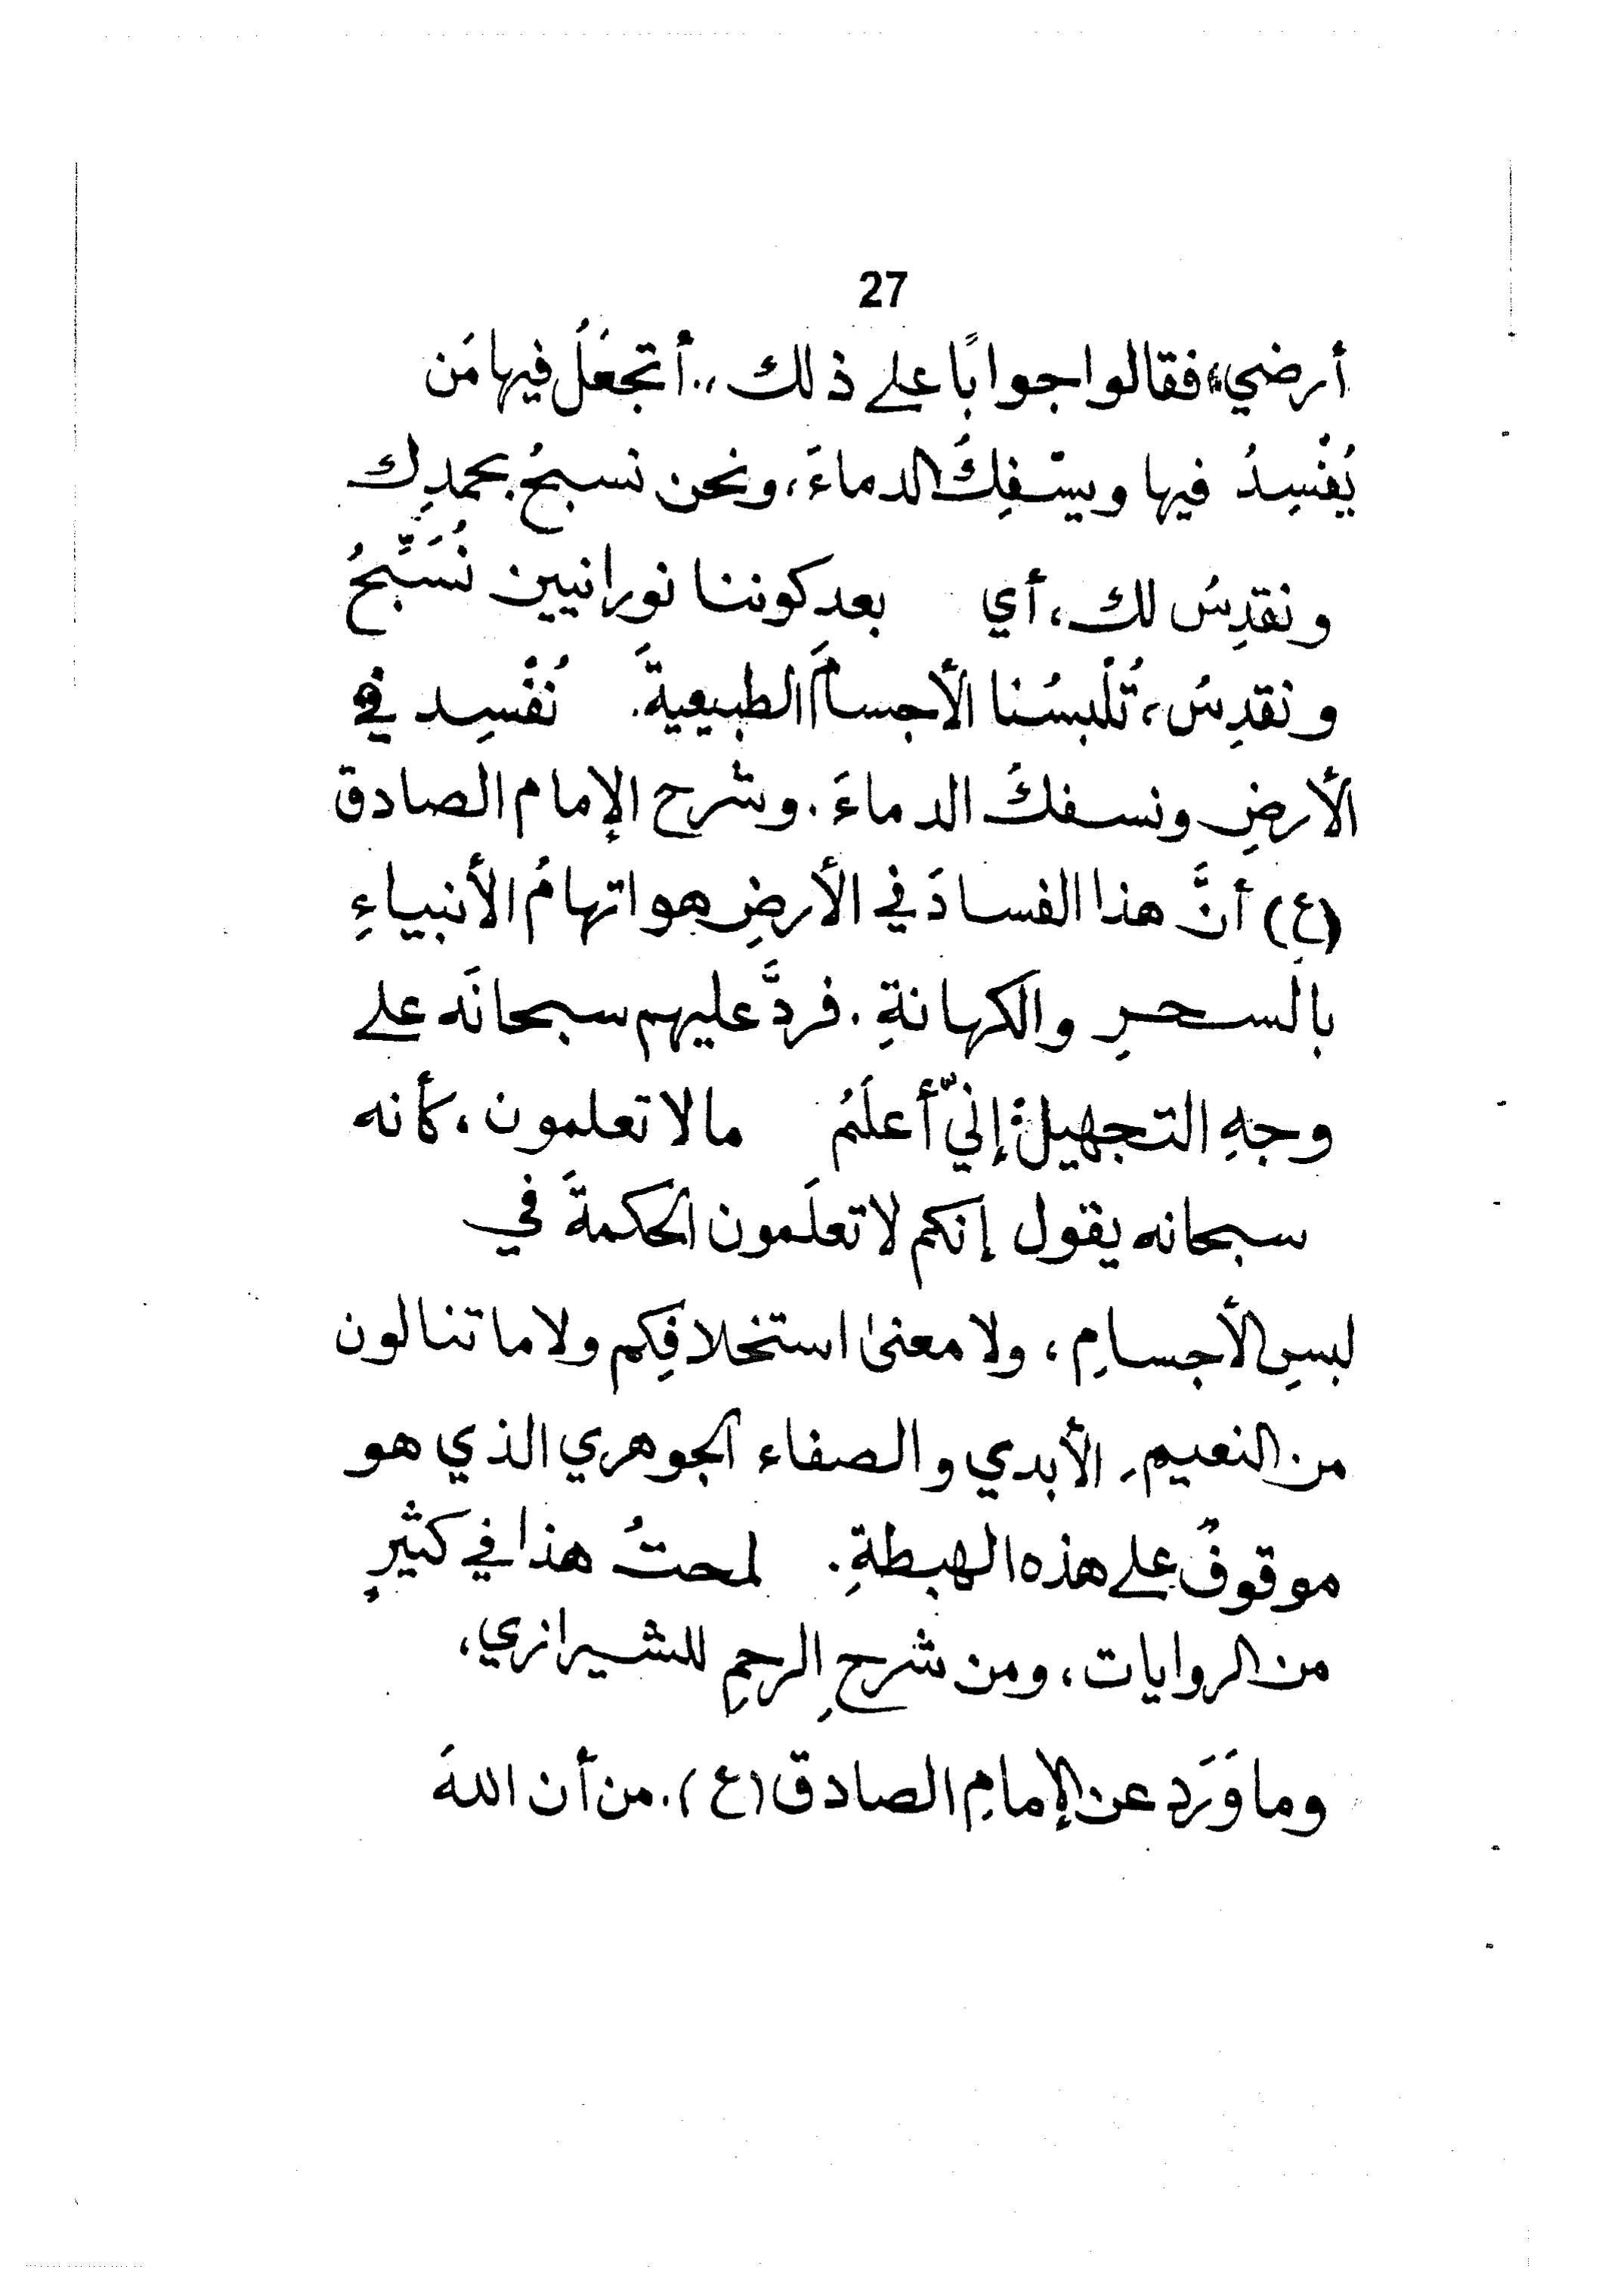 27
أرضي، فقالوا جوابًا على ذلك،.. أتجعَلُ فيها مَن
يُفْسِدُ فيها ويسْفِكُ الدماءَ، ونحن نسبحُ بحمدِك
ونقدِسُ لك، أي بعد كوننا نورانيين نُسَبِّحُ
ونقدِسُ، تُلْبسُنا الأجسامَ الطبيعيةَ. نُفْسِد في
الأرضِ ونسفكُ الدماءَ. وشرح الإمام الصادق
(ع) أنَّ هذا الفسادَ في الأرضِ هو اتهامُ الأنبياءِ
بالسحرِ والكهانةِ. فردَّ عليهم سبحانَه على
وجهِ التجهيل: إنيّ أعلَمُ مالا تعلمون، كأنه
سبحانه يقول إنكم لا تعلَمون الحكمةَ في
لبسِ الأجسامِ، ولا معنىٰ استخلافِكم ولا ما تنالون
من النعيمِ الأبدي والصفاء الجوهري الذي هو
موقوفٌ على هذه الهبطةِ. لمحتُ هذا في كثيرٍ
من الروايات، ومن شرحِ الرحمِ للشيرازي،
وما وَرَد عن الإمامِ الصادق (ع). من أن اللهَ